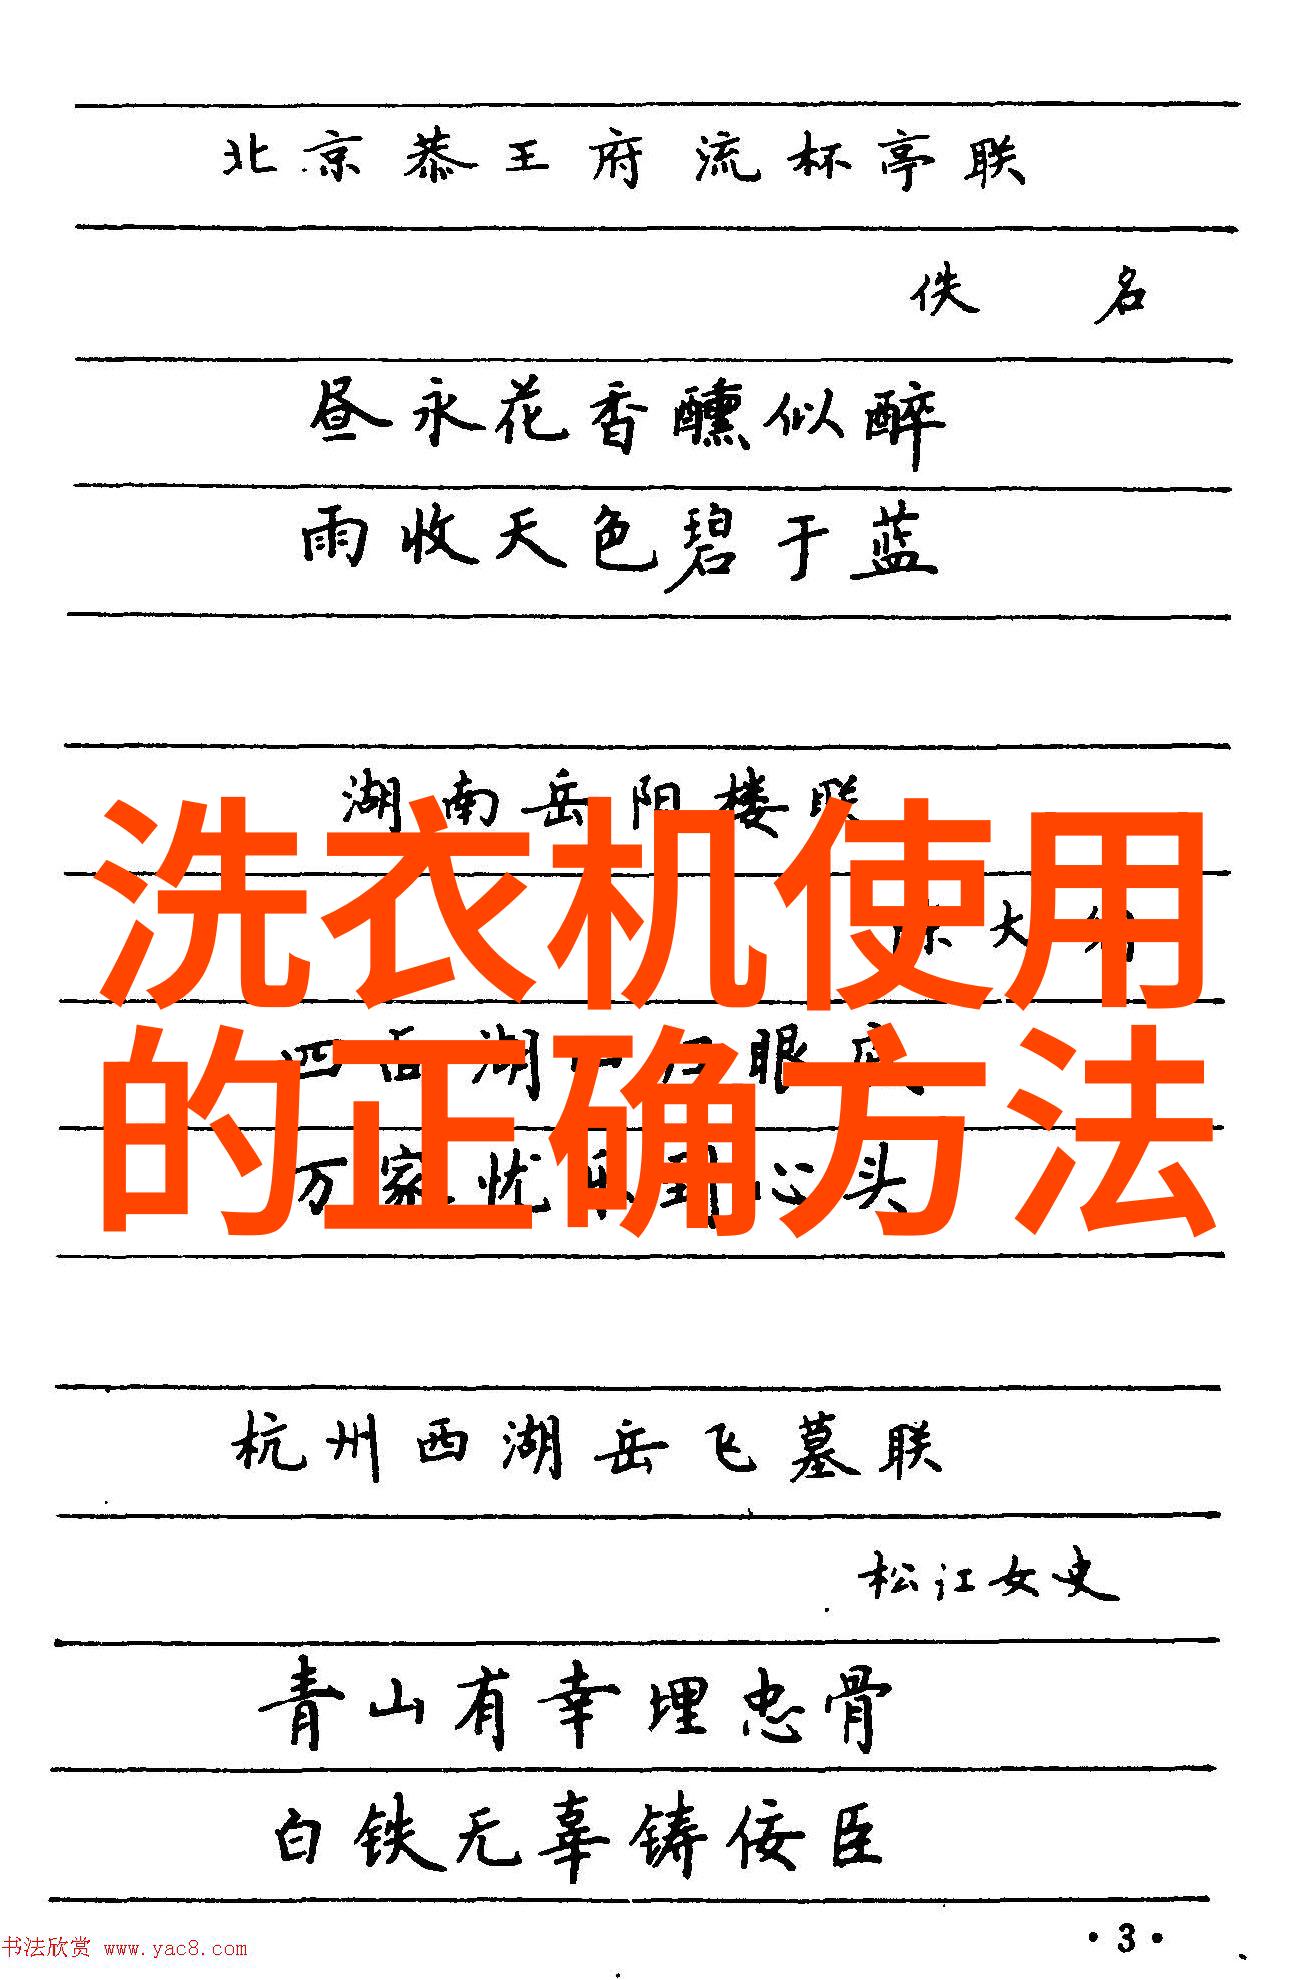 北京恭王府流杯亭联
佚名
昼永花香醺似醉
雨收天色碧于蓝
湖南岳阳楼联
洗衣机使用
大
的正确方法
四面湖眼
万家忧乐到心头
杭州西湖岳飞墓联
松江女史
青山有幸埋忠骨
白铁无辜铸佞臣
·3·
书法欣赏 www.yac8.com